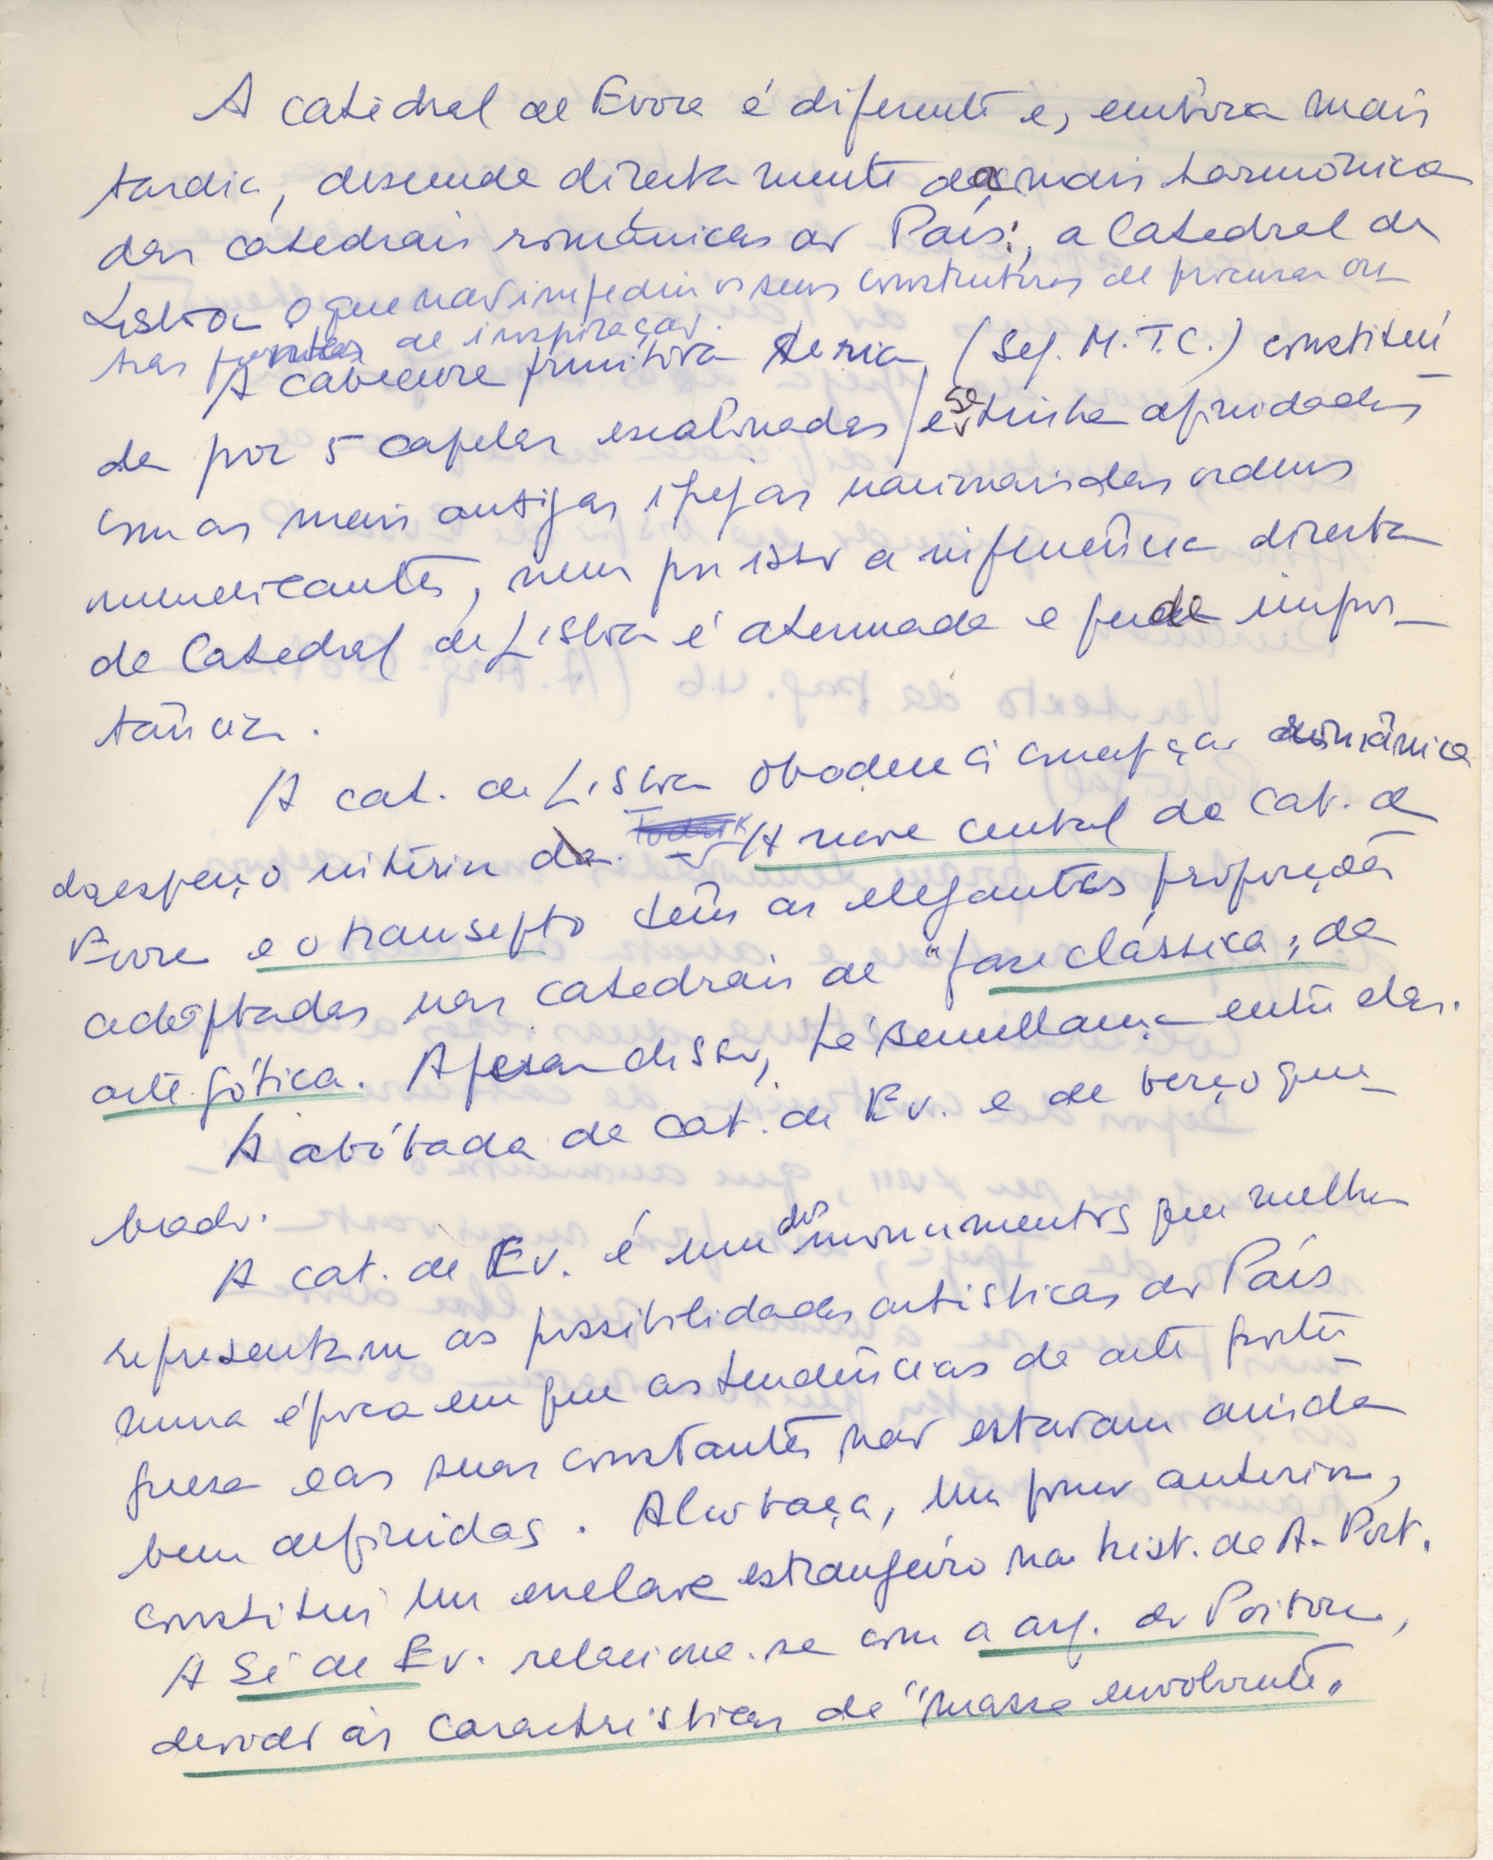 A catedral de Evora é diferente e, embora mais
tardia, descende directamente da mais harmónica
das catedrais românicas do País:, a Catedral de
Lisboa o que não impediu os seus construtores de procurar ou-
tras fontes de inspiração.
A cabeceira primitiva seria, (seg. M.T.C.) constituí
da por 5 capelas escalonadas / e se tinha afinidades
com as mais antigas igrejas nacionais das ordens
mendicantes, nem por isso a influência directa
da Catedral de Lisboa é atenuada e perde impor-
tância.
A cat. de Lisboa obedece à concepção românica
do espaço interior da. A nave central da cat. de
Evora e o transepto têm as elegantes proporções
adoptadas nas catedrais de "fase clássica" da
arte gótica. Apesar disso, há semelhança entre elas.
A abóbada da cat. de Ev. e de berço que-
brado.
A cat. de Ev. é um dos monumentos que melhor
representam as possibilidades artísticas do País
numa época em que as tendências da arte portu-
guesa e as suas constantes não estavam ainda
bem definidas. Alcobaça, um pouco anterior,
constitui um enclave estrangeiro na hist. da A. Port.
A Sé de Ev. relaciona-se com a arq. do Poitou,
devido às características de "massa envolvente".